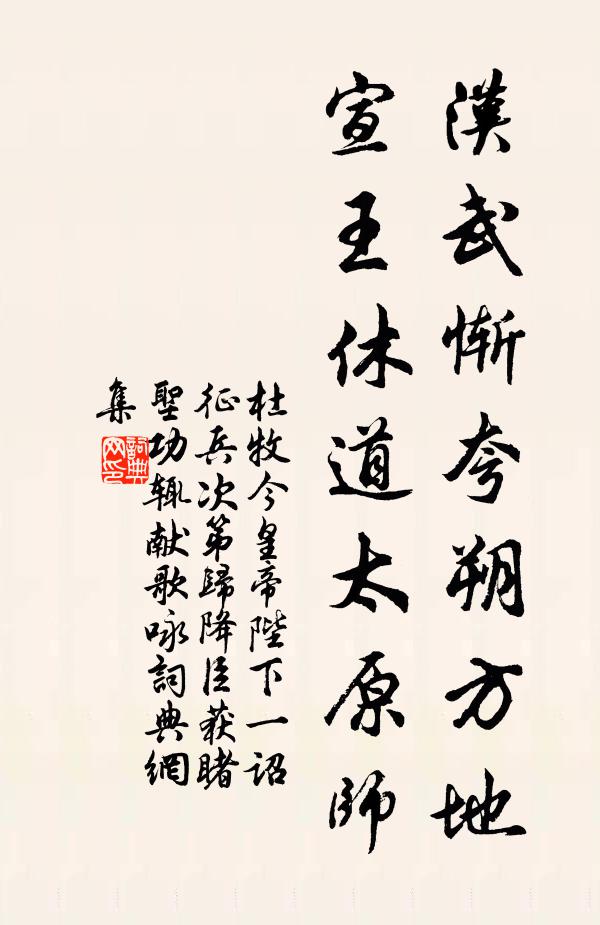 漢武慚夸朔方地
宣王休道太原師
杜牧今皇帝陛下一詔
征兵次第歸降臣获睹
聖功辄献歌咏詞典網
集
詞典
网印